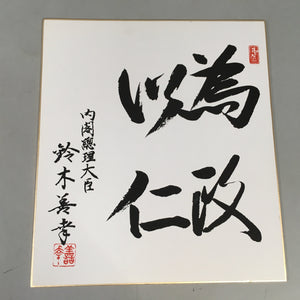 為政
以仁
内閣總理大臣
鈴木善幸